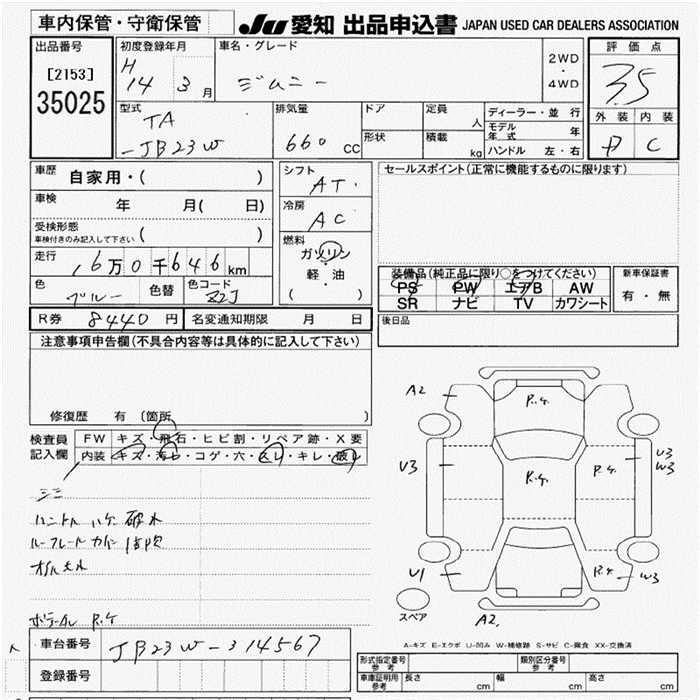 車内保管・守衛保管 JU 愛知 出品申込書 JAPAN USED CAR DEALERS ASSOCIATION
出品番号 初度登録年月 車名・グレード 2WD・4WD 評価点
[2153] H 14 3月 ジムニー 3.5
35025 外装 内装
型式 TA 排気量 ドア 定員 人 ディーラー・並行
-JB23W 660 cc 形状 積載 kg モデル年式 年 C
ハンドル 左・右
車歴 自家用・( ) シフト AT セールスポイント(正常に機能するものに限ります)
車検 年 月( 日) 冷房 AC
受検形態
車検付きのみ記入して下さい ( ) 燃料 ガソリン
走行 16万0千646km 軽・油 装備品(純正品に限り○をつけてください) 新車保証書
色 ブルー 色替 色コード Z2J ( ) PS PW エアB AW 有・無
SR ナビ TV カワシート
R券 8440円 名変通知期限 月 日 後日品
注意事項申告欄(不具合内容等は具体的に記入して下さい)
修復歴 有 (箇所 )
検査員 FW キズ・飛石・ヒビ割・リペア跡・X要
記入欄 内装 キズ・汚れ・コゲ・穴・スレ・キレ・破れ
A2 R.ケ
V3 R.ケ R.ケ V3 W3
U1 R.ケ W3
スペア A2
オイルモレ
R.ケ
A-キズ E-エクボ U-凹み W-補修跡 S-サビ C-腐食 XX-交換済
車台番号 JB23W-314567 形式指定番号 参考 類別区分番号 参考
登録番号 車庫証明用 参考 長さ cm 幅 cm 高さ cm